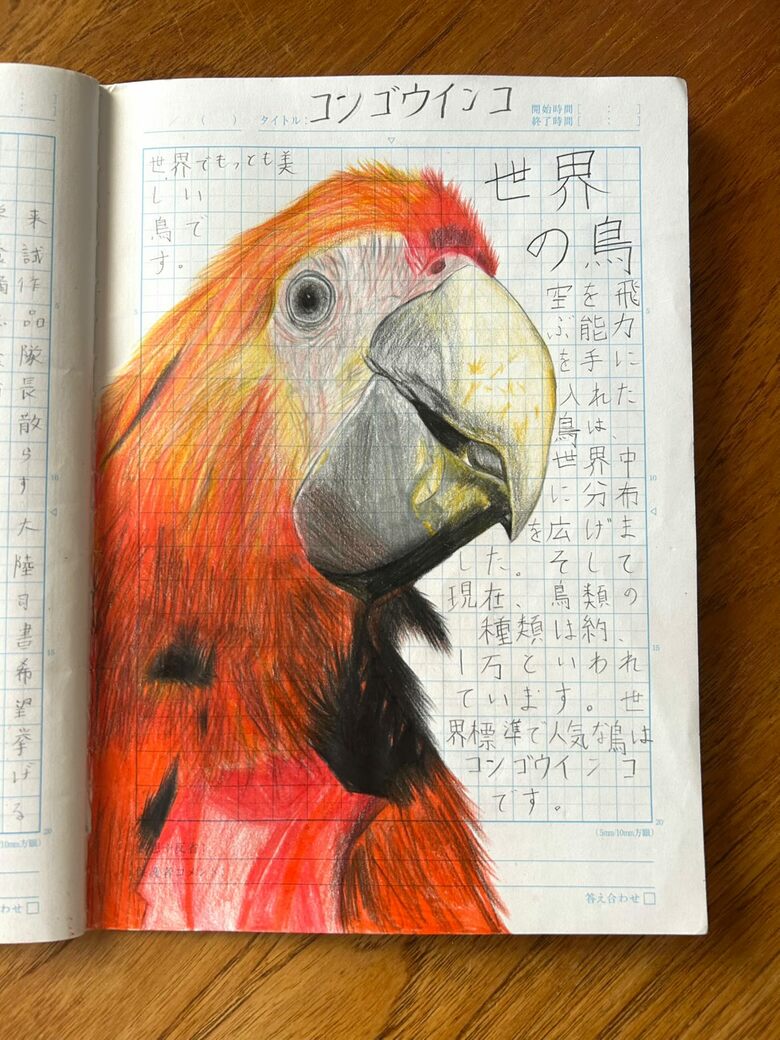 来試作品隊長散らす大陸司書希望挙げる
わせ
タイトル：コンゴウインコ
開始時間［　：　］
終了時間［　：　］
世界でもっとも美
しい
鳥で
す。
世界
の鳥
空を飛
ぶ能力
を手に
入れた
鳥は、
世界中
に分布
を広げま
した。そして
現在、鳥類の
種類は約、
一万といわれ
ています。世
界標準で人気な鳥は
コンゴウインコ
です。
(5mm/10mm方眼)
答え合わせ